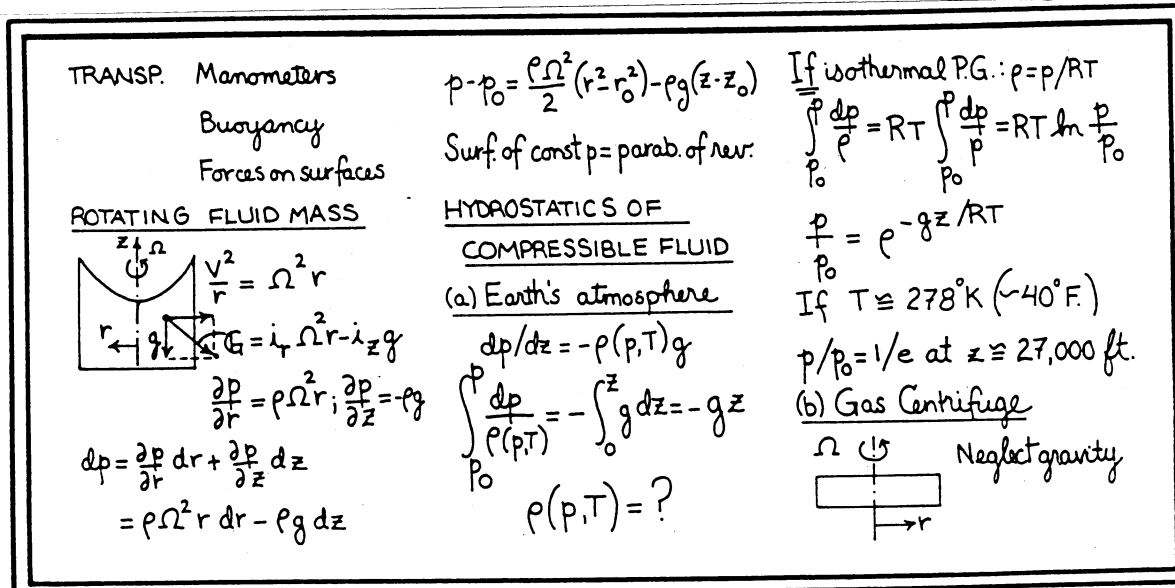 TRANSP. Manometers
Buoyancy
Forces on surfaces
ROTATING FLUID MASS
z Ω
r
g
V²/r = Ω²r
G = i_r Ω²r - i_z g
∂p/∂r = ρΩ²r ; ∂p/∂z = -ρg
dp = ∂p/∂r dr + ∂p/∂z dz
= ρΩ²r dr - ρg dz
p-p₀ = ρΩ²/2 (r²-r₀²) - ρg(z-z₀)
Surf. of const p = parab. of rev.
HYDROSTATICS OF
COMPRESSIBLE FLUID
(a) Earth's atmosphere
dp/dz = -ρ(p,T)g
∫_{p₀}^{p} dp/ρ(p,T) = -∫_{0}^{z} g dz = -gz
ρ(p,T) = ?
If isothermal P.G.: ρ=p/RT
∫_{p₀}^{p} dp/ρ = RT ∫_{p₀}^{p} dp/p = RT ln p/p₀
p/p₀ = e^{-gz/RT}
If T ≅ 278°K (~40°F.)
p/p₀ = 1/e at z ≅ 27,000 ft.
(b) Gas Centrifuge
Ω Neglect gravity
r